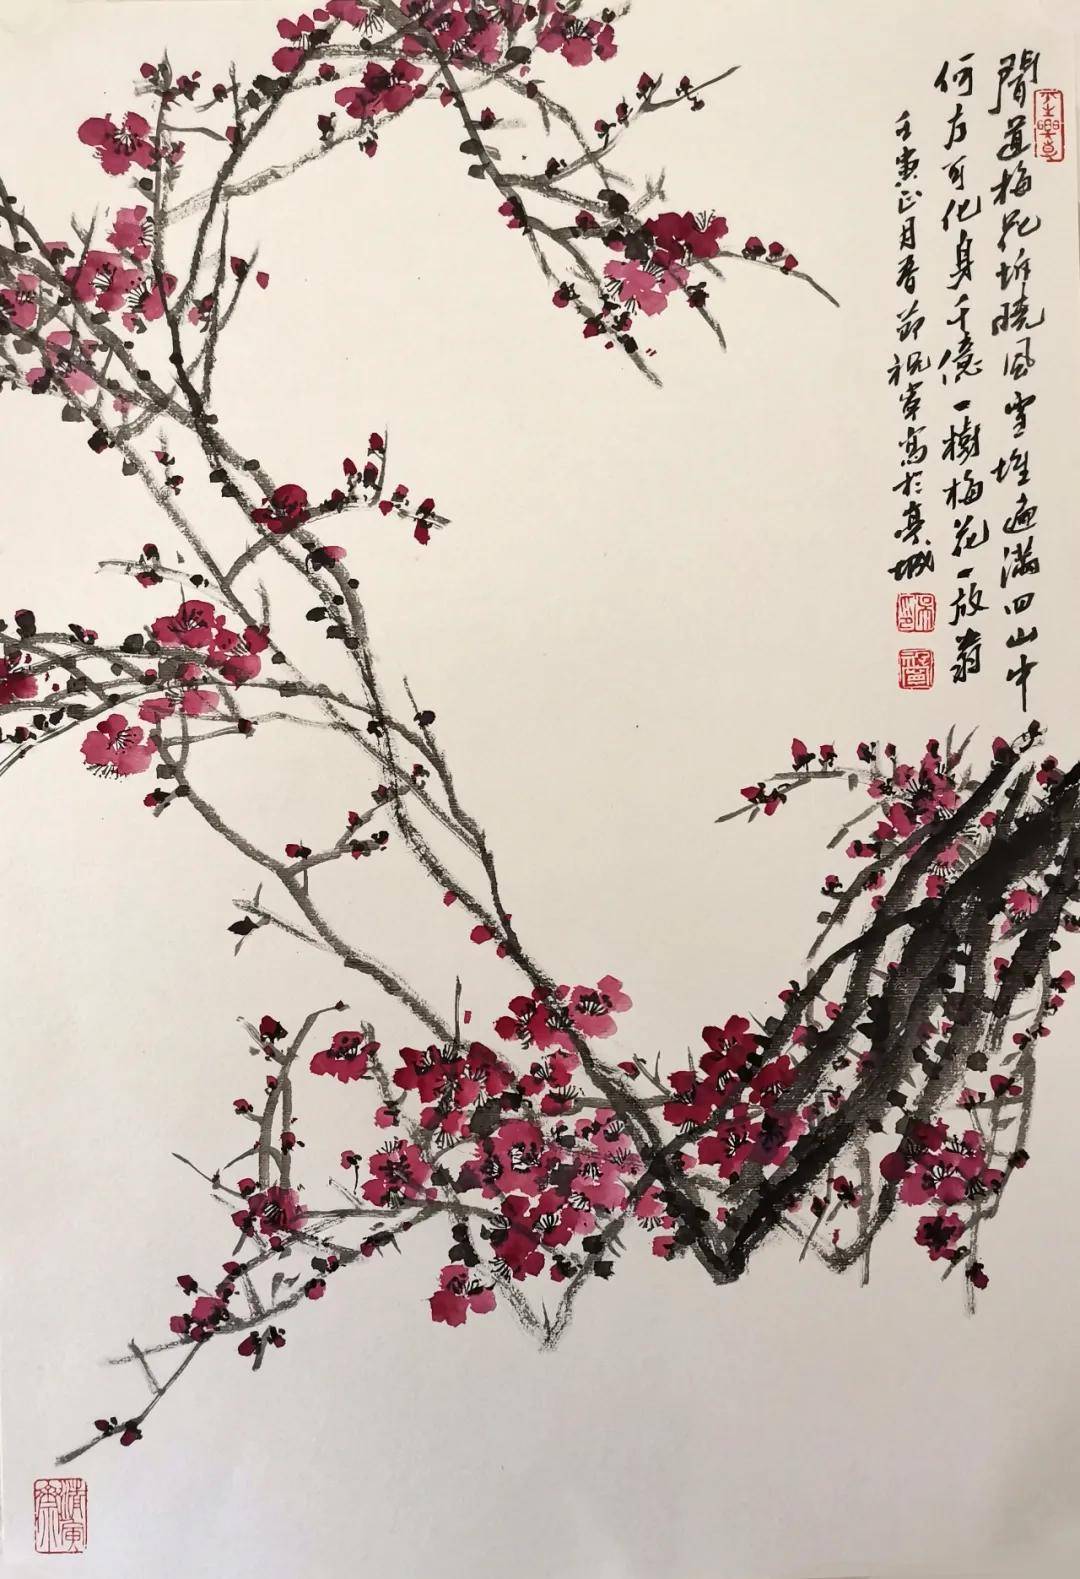 聞道梅花坼曉風雪堆遍滿四山中
何方可化身千億一樹梅花一放翁
壬寅正月春節祝寫於亳城